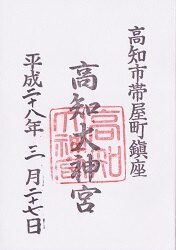 高知市帯屋町鎮座
高知大神宮
平成二十八年 三月二十七日
高知大神宮